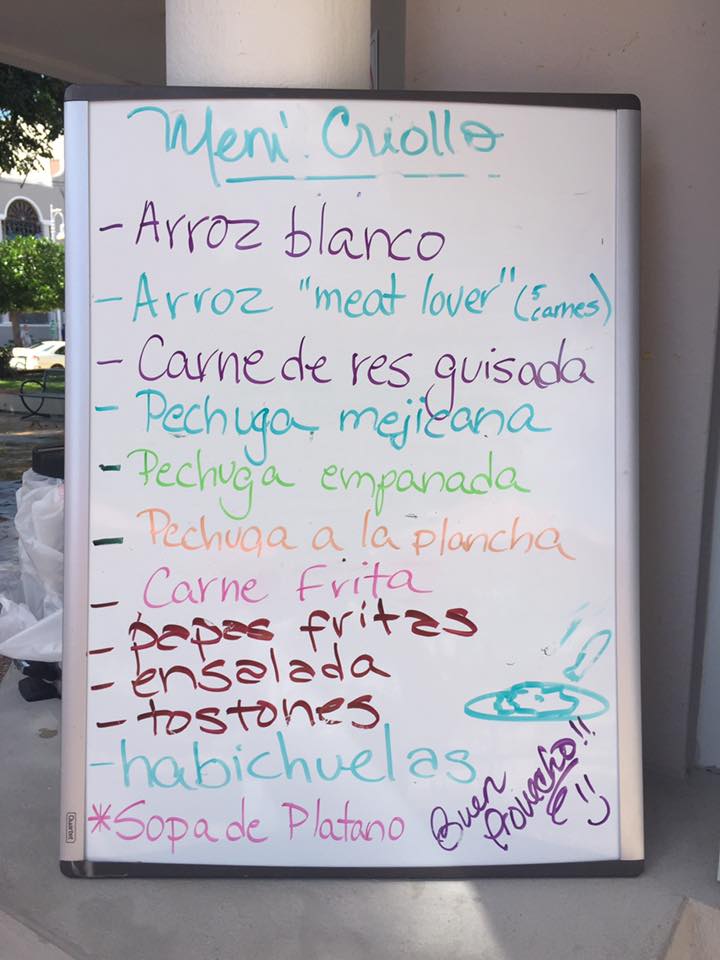 Meni Criollo
- Arroz blanco
- Arroz "meat lover" (5 carnes)
- Carne de res guisada
- Pechuga mejicana
- Pechuga empanada
- Pechuga a la plancha
- Carne Frita
- papas fritas
- ensalada
- tostones
- habichuelas
*Sopa de Platano
Buen Provecho!!
Quartet